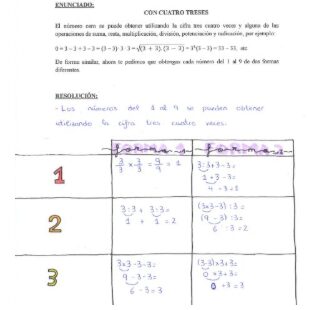 ENUNCIADO:
CON CUATRO TRESES
El número cero se puede obtener utilizando la cifra tres cuatro veces y alguna de las
operaciones de suma, resta, multiplicación, división, potenciación y radicación, por ejemplo:
De forma similar, ahora te pedimos que obtengas cada número del 1 al 9 de dos formas
diferentes.
RESOLUCIÓN:
- Los números del 1 al 9 se pueden obtener
utilizando la cifra tres cuatro veces.
forma 1 forma 2
1
3/3 × 3/3 = 9/9 = 1
3:3+3-3=
1+3-3=
4-3=1
2
3:3 + 3:3=
1 + 1 = 2
(3x3-3):3=
(9-3):3=
6 :3 =2
3
3x3-3-3=
9-3-3=
6-3=3
(3-3)x3+3=
0x3+3=
0+3=3